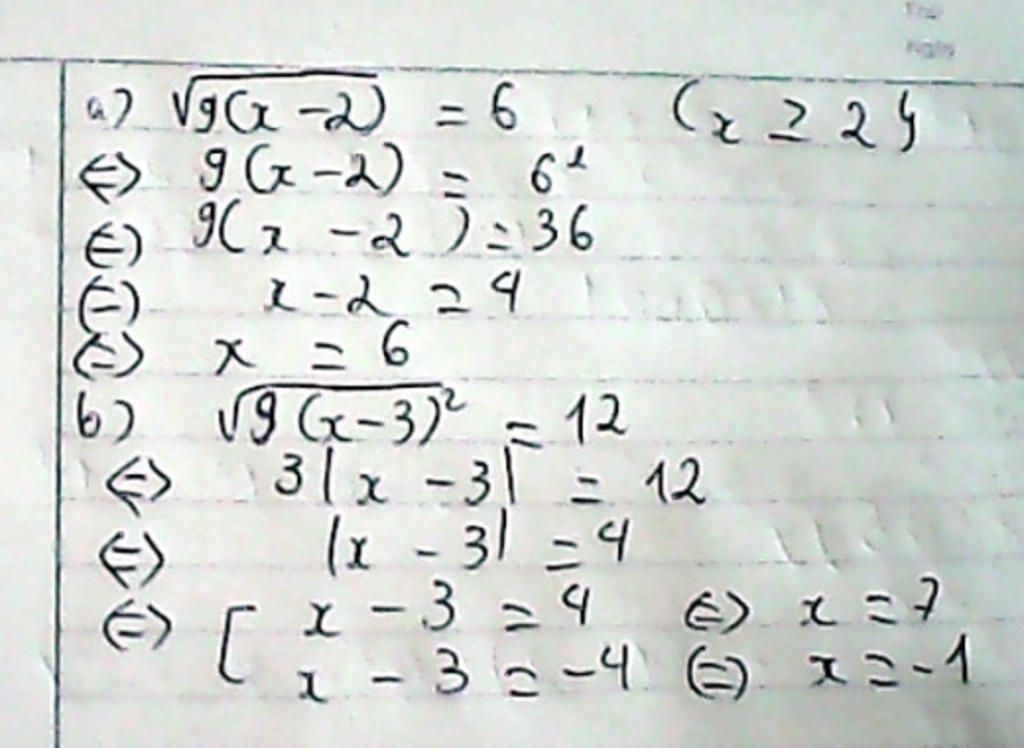 a) √9(x-2) = 6 (x ≥ 2)
⇔ 9(x-2) = 6²
⇔ 9(x-2) = 36
⇔ x-2 = 4
⇔ x = 6
b) √9(x-3)² = 12
⇔ 3|x-3| = 12
⇔ |x-3| = 4
⇔ [ x-3 = 4 ⇔ x = 7
x-3 = -4 ⇔ x = -1